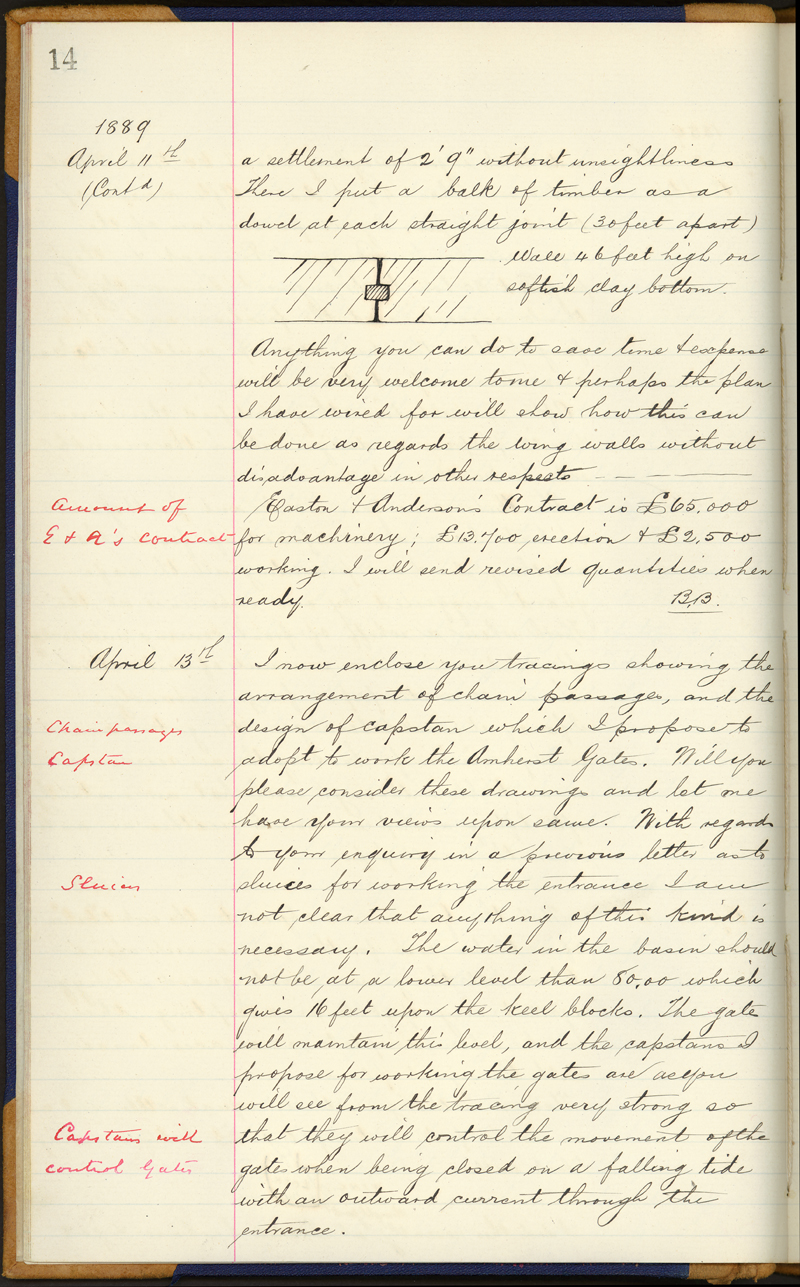 14
1889
April 11th
(Contd)
a settlement of 2' 9" without unsightliness
There I put a balk of timber as a
dowel at each straight joint (30 feet apart)
Wall 46 feet high on
softish clay bottom.
Anything you can do to save time & expense
will be very welcome to me & perhaps the plan
I have wired for will show how this can
be done as regards the wing walls without
disadvantage in other respects
Amount of
E & A's contract
Easton & Anderson's Contract is £65,000
for machinery; £13,700 erection & £2,500
working. I will send revised quantities when
ready. B.B.
April 13th
I now enclose you tracings showing the
arrangement of chain passages, and the
Chain passages
design of capstan which I propose to
Capstan
adopt to work the Amherst Gates. Will you
please consider these drawings and let me
have your views upon same. With regards
to your enquiry in a previous letter as to
Sluices
sluices for working the entrance I am
not clear that anything of this kind is
necessary. The water in the basin should
not be at a lower level than 80.00 which
gives 16 feet upon the keel blocks. The gates
will maintain this level, and the capstans I
propose for working the gates are as you
will see from the tracing very strong so
Capstans will
control Gates
that they will control the movement of the
gates when being closed on a falling tide
with an outward current through the
entrance.